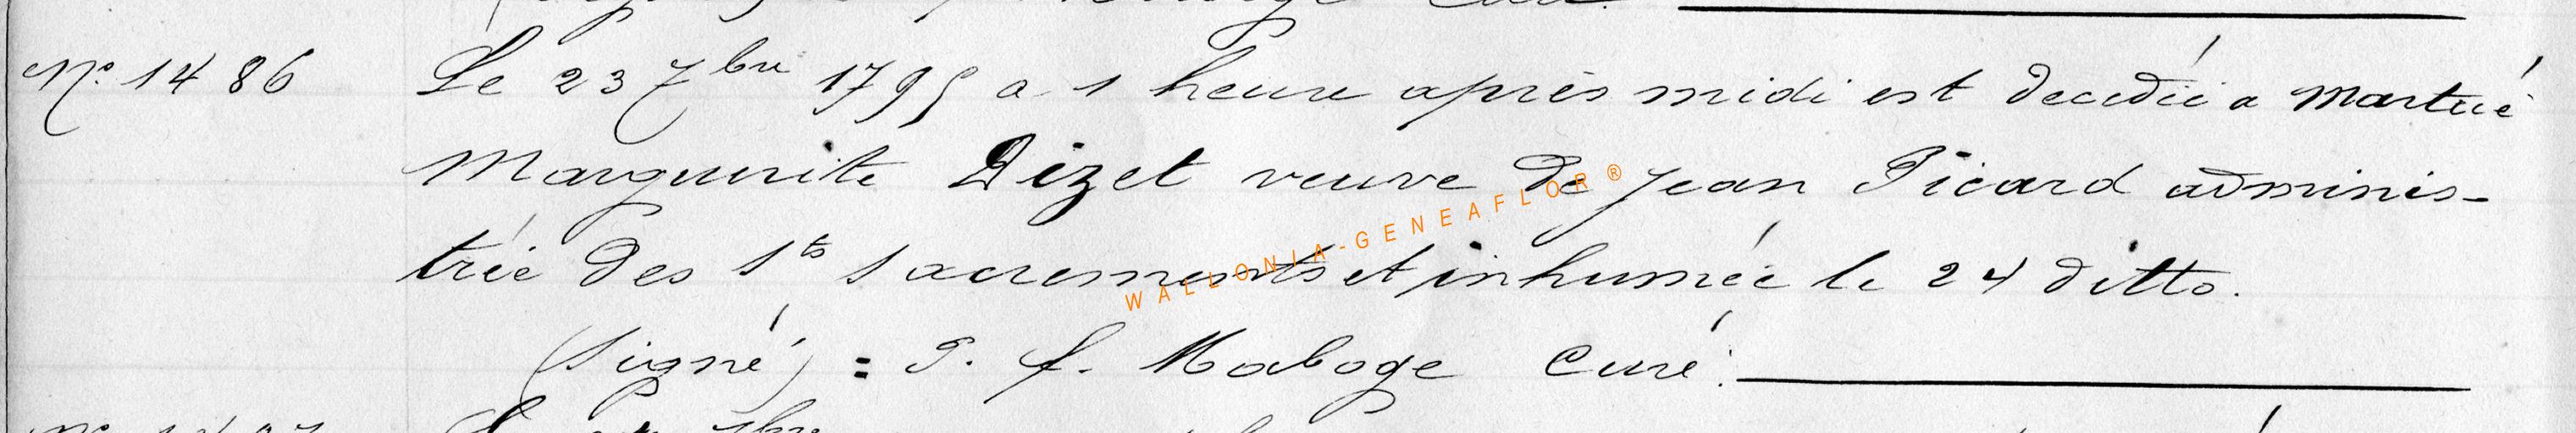 N° 1486 Le 23 7bre 1795 a 1 heure après midi est décédée a Martué
Marguerite Dizet veuve de Jean Picard adminis-
trée des Sts Sacrements et inhumée le 24 ditto.
(Signé) = P. f. Maboge Curé.
WALLONIA-GENEAFLOR®